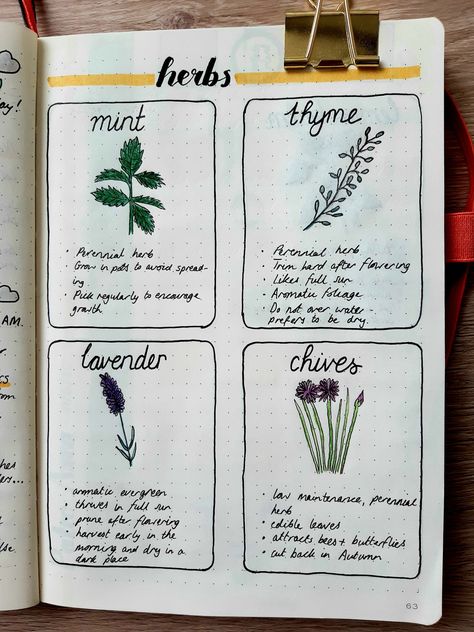 herbs
mint
• Perennial herb
• Grow in pots to avoid spread-
ing
• Pick regularly to encourage
growth
thyme
• Perennial herb
• Trim hard after flowering
• Likes full sun
• Aromatic foliage
• Do not over water -
prefers to be dry.
lavender
• aromatic evergreen
• thrives in full sun
• prune after flowering
• harvest early in the
morning and dry in a
dark place
chives
• low maintenance, perennial
herb
• edible leaves
• attracts bees + butterflies
• cut back in Autumn
63
AM.